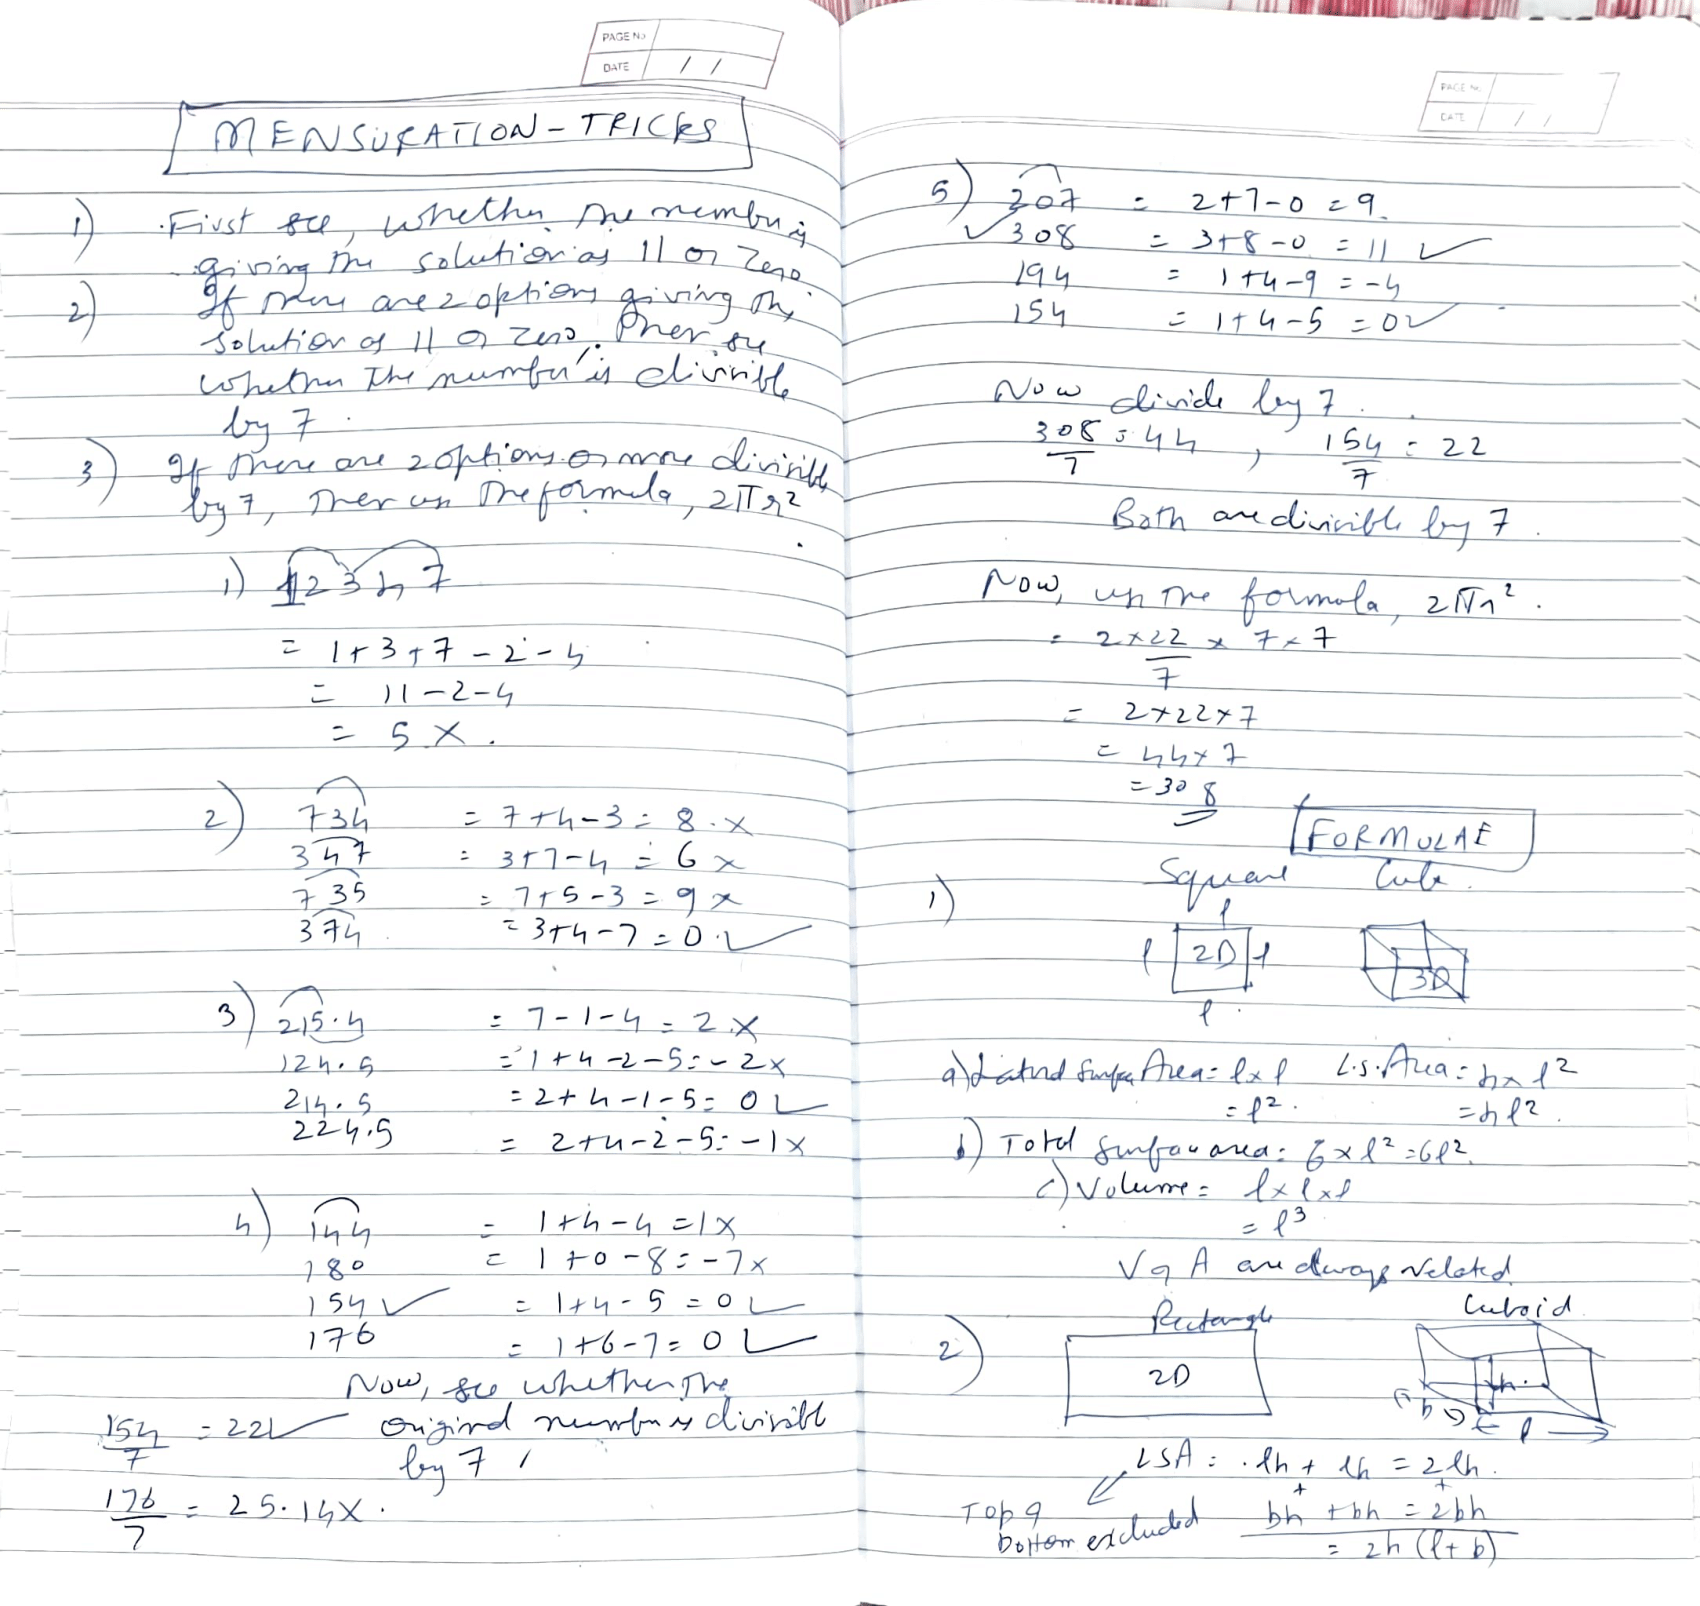 PAGE No
DATE / /
MENSURATION - TRICKS
1) First see, whether the number is
giving the solution as 11 or Zero
2) If there are 2 options giving the
solution as 11 or zero. Then see
whether the number is divisible
by 7.
3) If there are 2 options or more divisible
by 7, then use the formula, 2πr²
1) 12347
= 1+3+7-2-4
= 11-2-4
= 5 X.
2) 734 = 7+4-3 = 8.x
347 = 3+7-4 = 6 x
735 = 7+5-3 = 9 x
374 = 3+4-7 = 0.✓
3) 215.4 = 7-1-4 = 2.X
124.5 = 1+4-2-5 = -2x
214.5 = 2+4-1-5 = 0 ✓
224.5 = 2+4-2-5 = -1x
4) 144 = 1+4-4 = 1X
180 = 1+0-8 = -7x
154 ✓ = 1+4-5 = 0 ✓
176 = 1+6-7 = 0 ✓
Now, see whether the
original number is divisible
by 7
154/7 = 22 ✓
176/7 = 25.14X.
PAGE No.
DATE / /
5) 207 = 2+7-0 = 9.
✓ 308 = 3+8-0 = 11 ✓
194 = 1+4-9 = -4
154 = 1+4-5 = 0✓
Now divide by 7.
308/7 = 44, 154/7 = 22
Both are divisible by 7.
Now, use the formula, 2πr².
= 2×22/7 × 7×7
= 2×22×7
= 44×7
= 308
FORMULAE
1) Square Cube.
l
l 2D l 3D
l
a) Lateral Surface Area = l×l L.S.Area = 4×l²
= l². = 4l²
b) Total Surface area = 6×l² = 6l².
c) Volume = l×l×l
= l³
V & A are always related
2) Rectangle Cuboid
2D h
b l
LSA = lh + lh = 2lh.
+ +
Top & bh + bh = 2bh
bottom excluded = 2h (l+b)